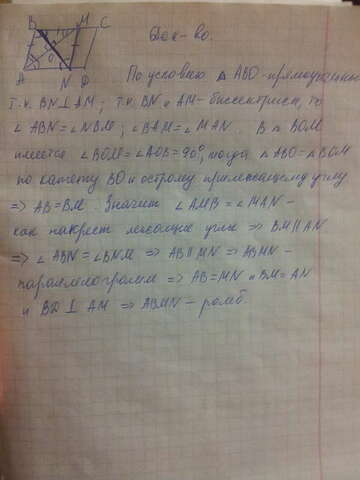 B M C
A N D
O
Док-во.
По условию △ ABO - прямоугольный
т.к. BN ⊥ AM; т.к. BN и AM - биссектрисы, то
∠ ABN = ∠ NBM; ∠ BAM = ∠ MAN. В △ BOM
имеется ∠ BOM = ∠ AOB = 90°, тогда △ ABO = △ BOM
по катету BO и острому прилежащему углу
=> AB = BM. Значит ∠ AMB = ∠ MAN -
как накрест лежащие углы => BM || AN
=> ∠ ABN = ∠ BNM => AB || MN => ABMN -
параллелограмм => AB = MN и BM = AN
и BD ⊥ AM => ABMN - ромб.